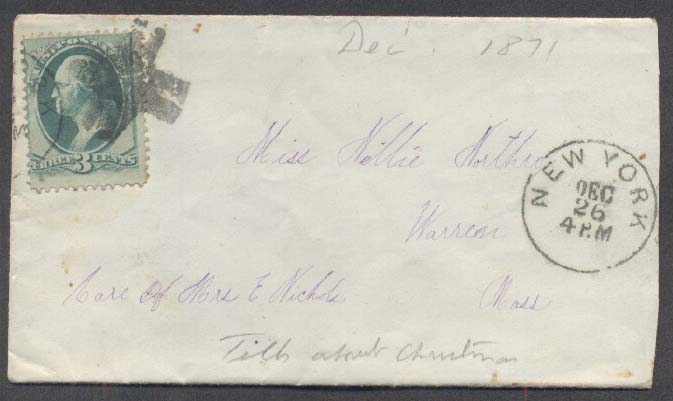 Dec 1871
Miss Nellie Northro
NEW YORK
DEC
26
4 P.M
Warren
Care of Mrs E Nichols
Mass
Tells about Christmas
THREE 3 CENTS